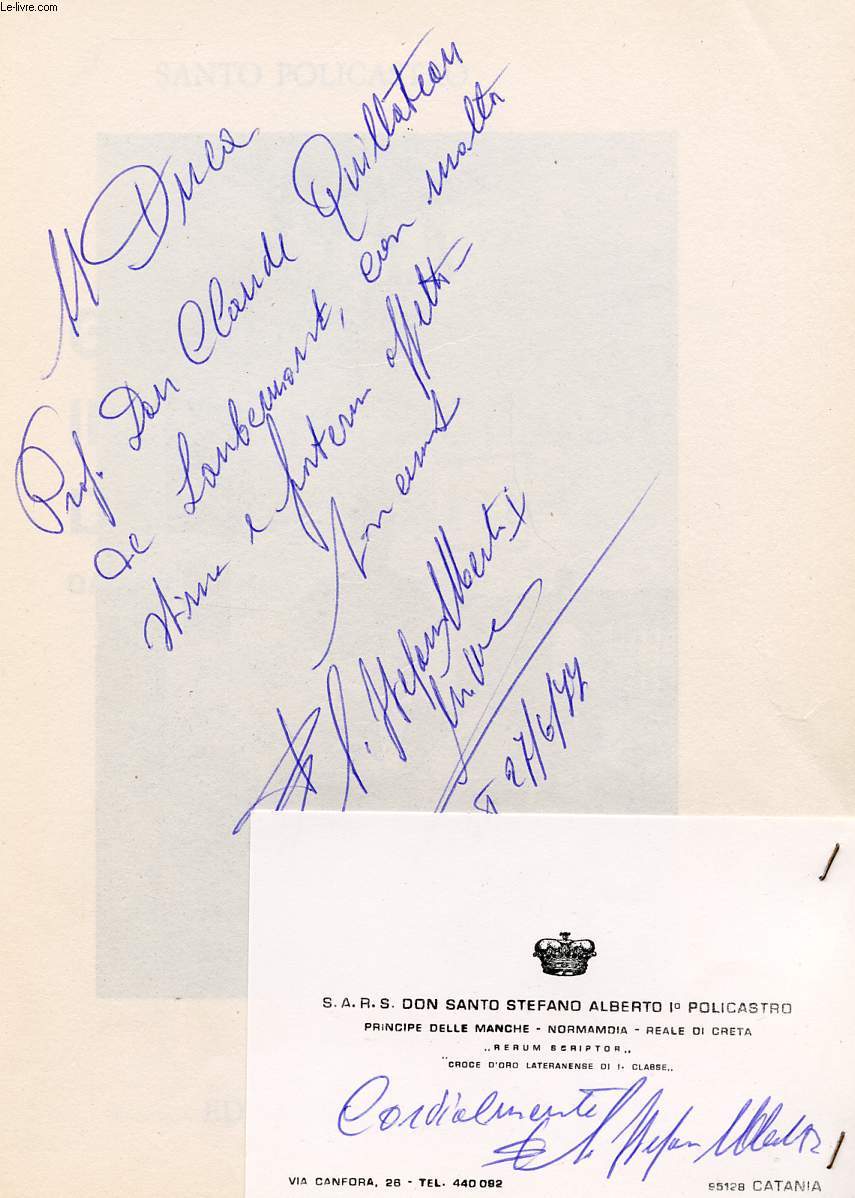 Le-livre.com
SANTO POLICASTRO
Il Duca
Prof. Don Claude Quillateau
de Loubemont, con molta
stima e fraterni affetti
S. Stefano Alberto I
27/6/77
S.A.R.S. DON SANTO STEFANO ALBERTO Iº POLICASTRO
PRINCIPE DELLE MANCHE - NORMAMDIA - REALE DI CRETA
,,RERUM SCRIPTOR,,
"CROCE D'ORO LATERANENSE DI 1ª CLASSE,,
Cordialmente
S. Stefano Alberto
VIA CANFORA, 26 - TEL. 440092
95128 CATANIA